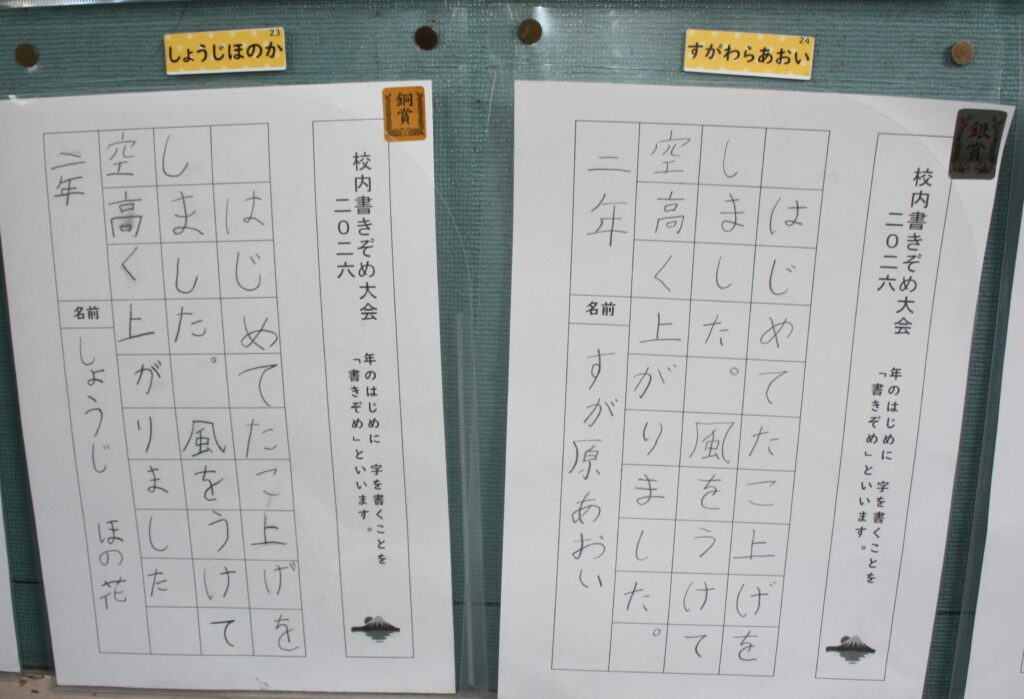 23
しょうじほのか
銅賞
校内書きぞめ大会
二〇二六
年のはじめに 字を書くことを
「書きぞめ」といいます。
はじめてたこ上げを
しました。風をうけて
空高く上がりました
二年
名前
しょうじ ほの花
24
すがわらあおい
銀賞
校内書きぞめ大会
二〇二六
年のはじめに 字を書くことを
「書きぞめ」といいます。
はじめてたこ上げを
しました。風をうけて
空高く上がりました。
二年
名前
すが原あおい